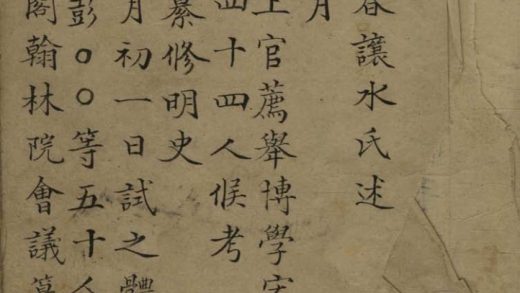 春讓水氏述
月
上官薦舉博學宏
四十四人候考
纂修明史
月初一日試之體
彭〇〇等五十人
閣翰林院會議